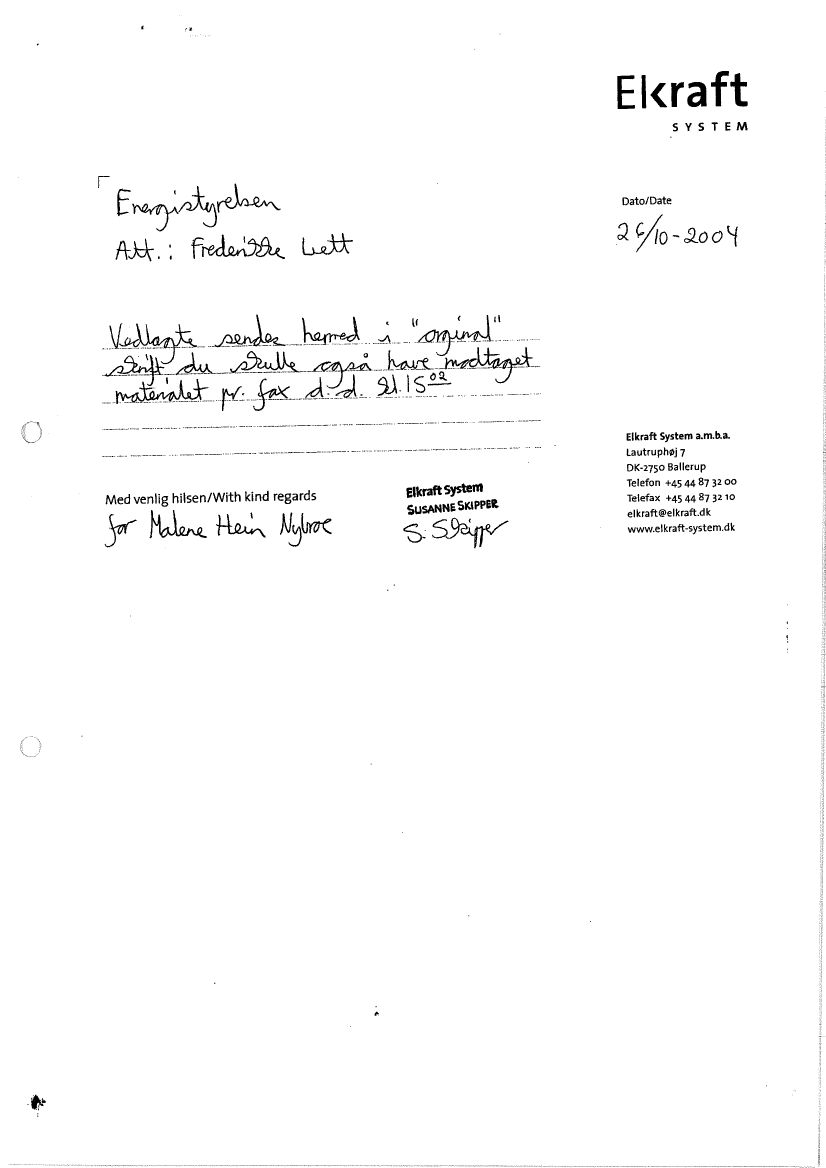 Elkraft
SYSTEM
Energistyrelsen
Att.: Frederikke Lett
Dato/Date
26/10-2004
Vedlagte sendes hermed i "orginal"
skrift du skulle også have modtaget
materialet pr. fax d.d. kl. 15⁰²
Elkraft System a.m.b.a.
Lautruphøj 7
DK-2750 Ballerup
Telefon +45 44 87 32 00
Telefax +45 44 87 32 10
elkraft@elkraft.dk
www.elkraft-system.dk
Med venlig hilsen/With kind regards
for Malene Hein Nybroe
Elkraft System
SUSANNE SKIPPER
S. Skipper